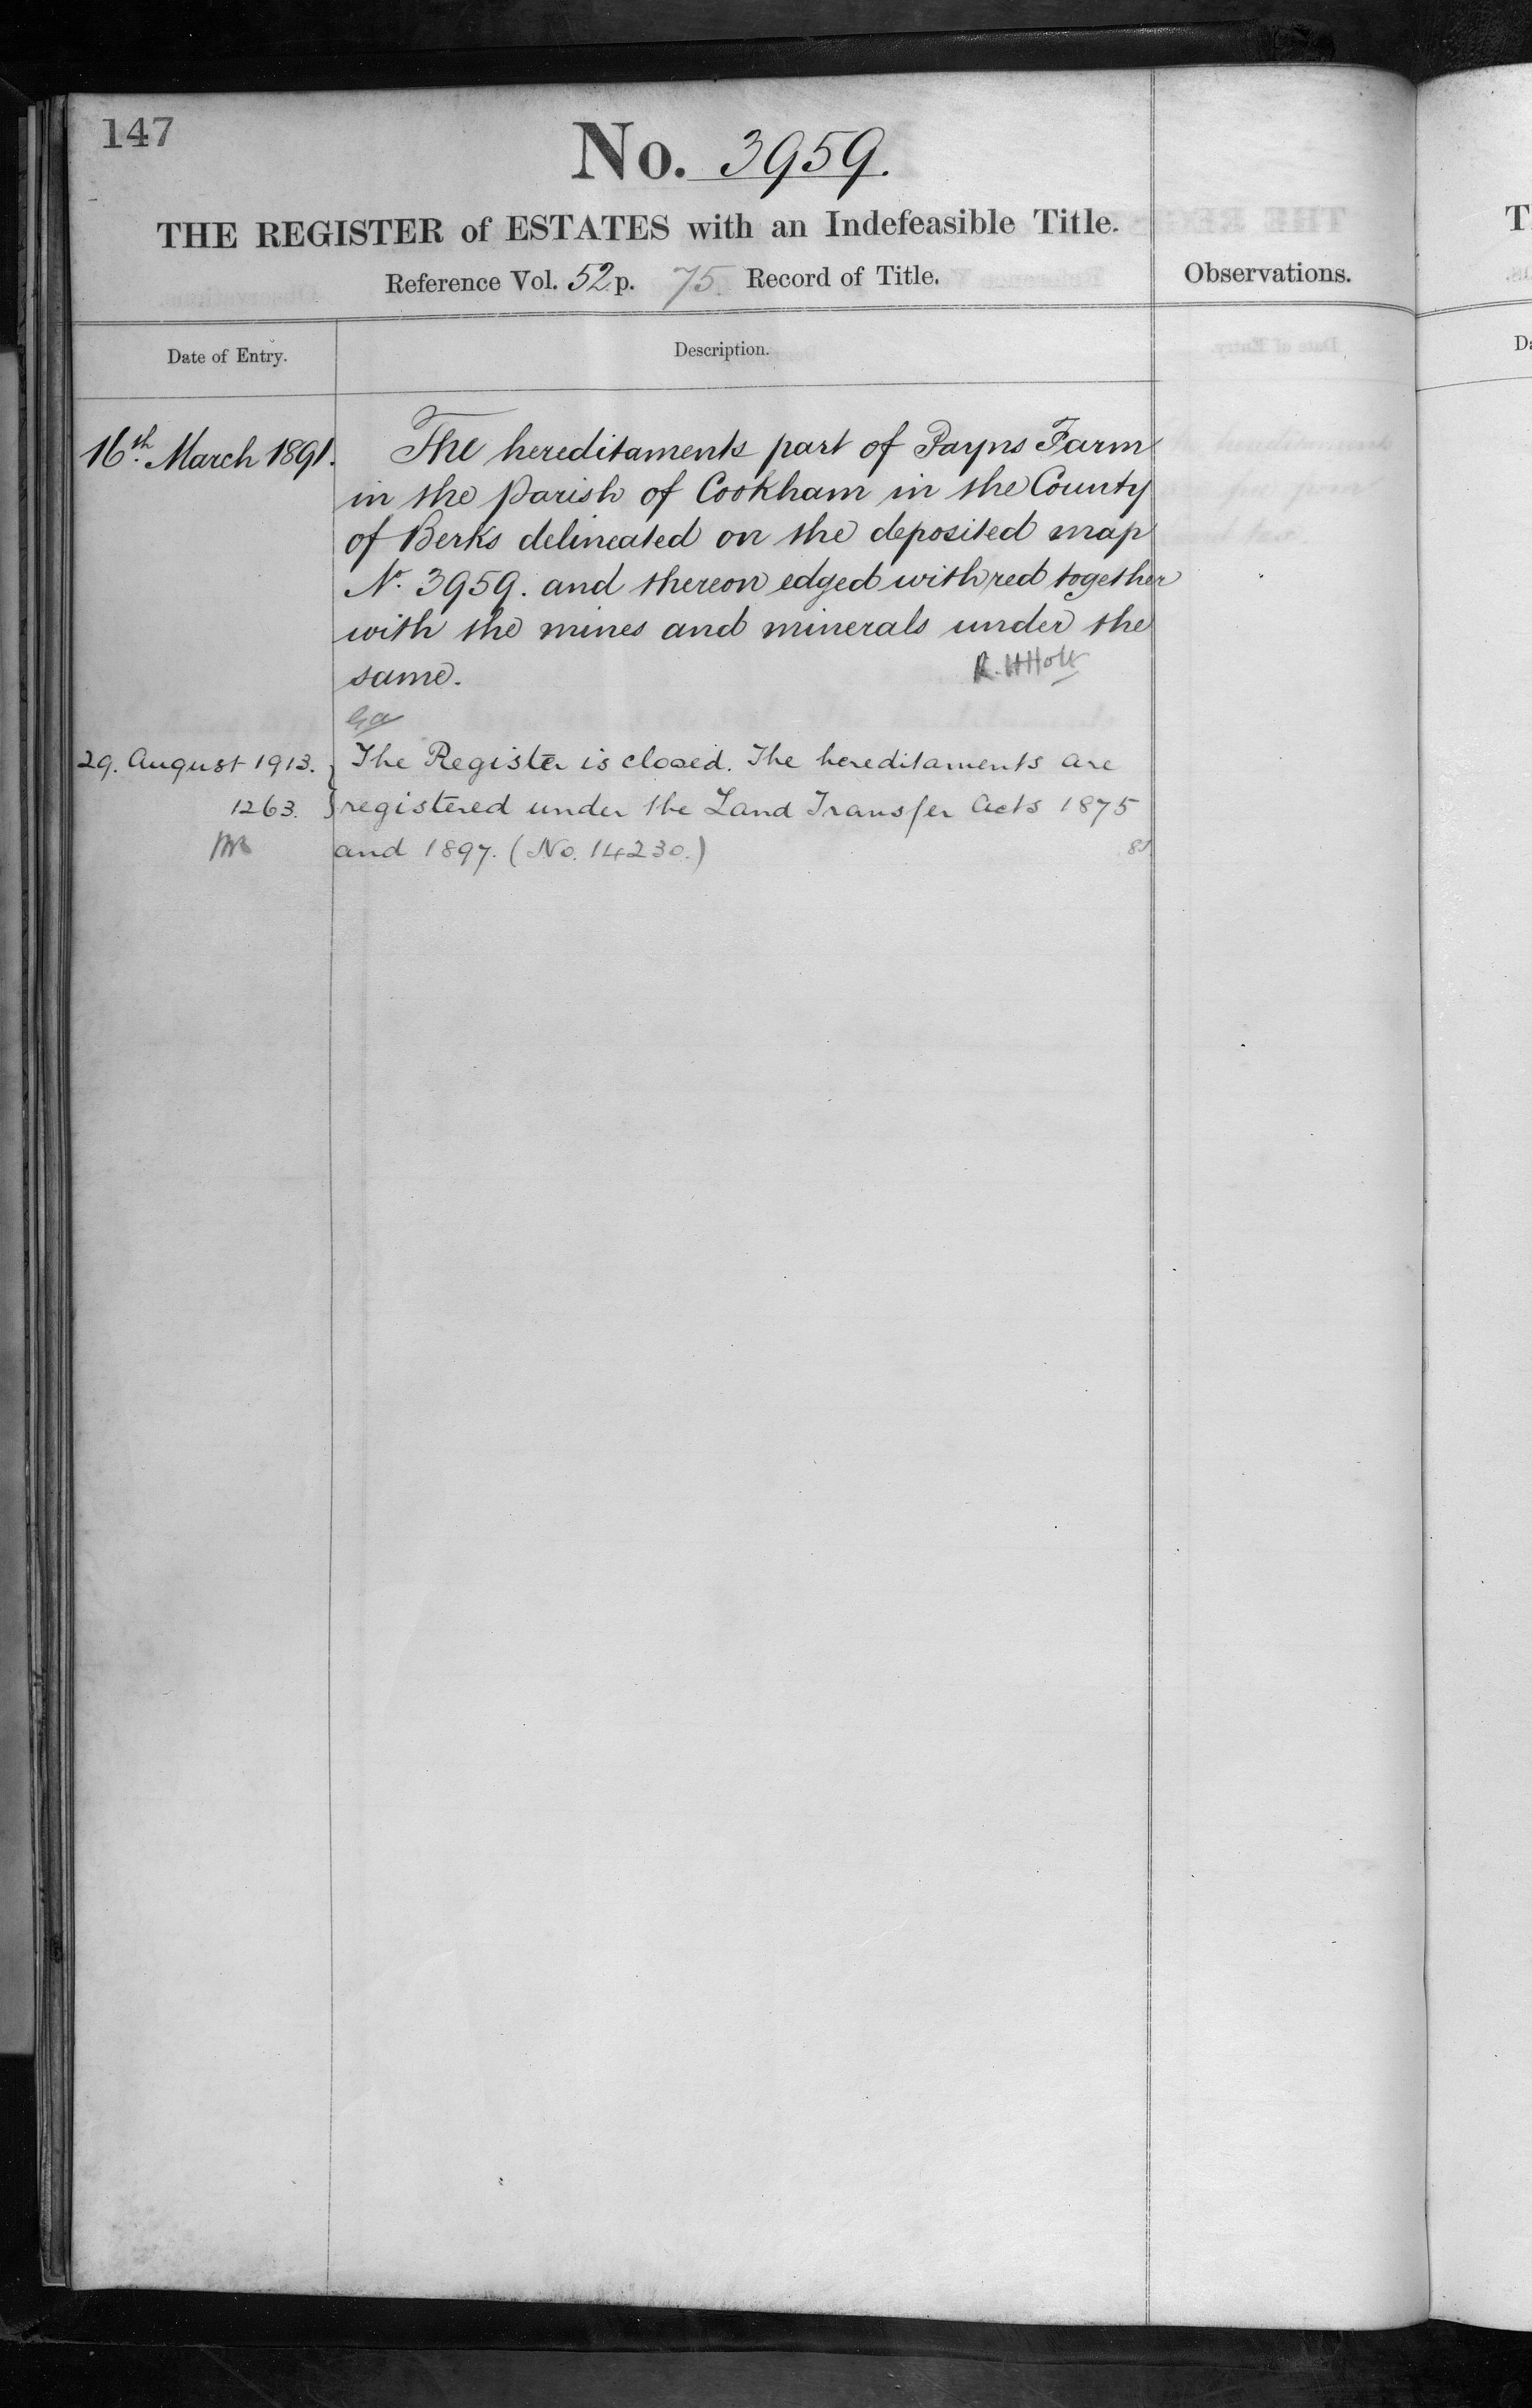 147
No. 3959.
THE REGISTER of ESTATES with an Indefeasible Title.
Reference Vol. 52 p. 75. Record of Title.
Observations.
Date of Entry.
Description.
16th March 1891.
The hereditaments part of Payns Farm
in the Parish of Cookham in the County
of Berks delineated on the deposited map
No. 3959. and thereon edged with red together
with the mines and minerals under the
same.
R. H Holt
29. August 1913.
1263.
The Register is closed. The hereditaments are
registered under the Land Transfer Acts 1875
and 1897. (No. 14230.)